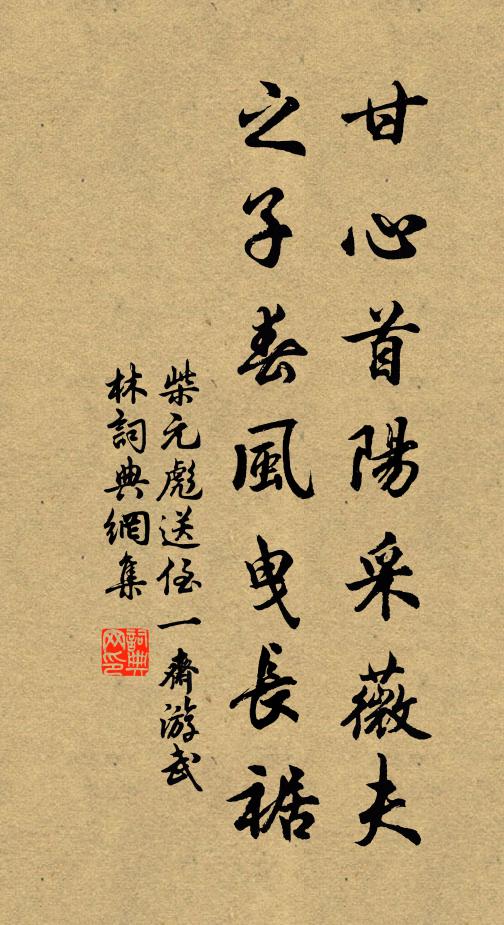 甘心首陽采薇夫
之子春風曳長裾
柴元彪送侄一齋游武
林詞典網集
詞典
网印